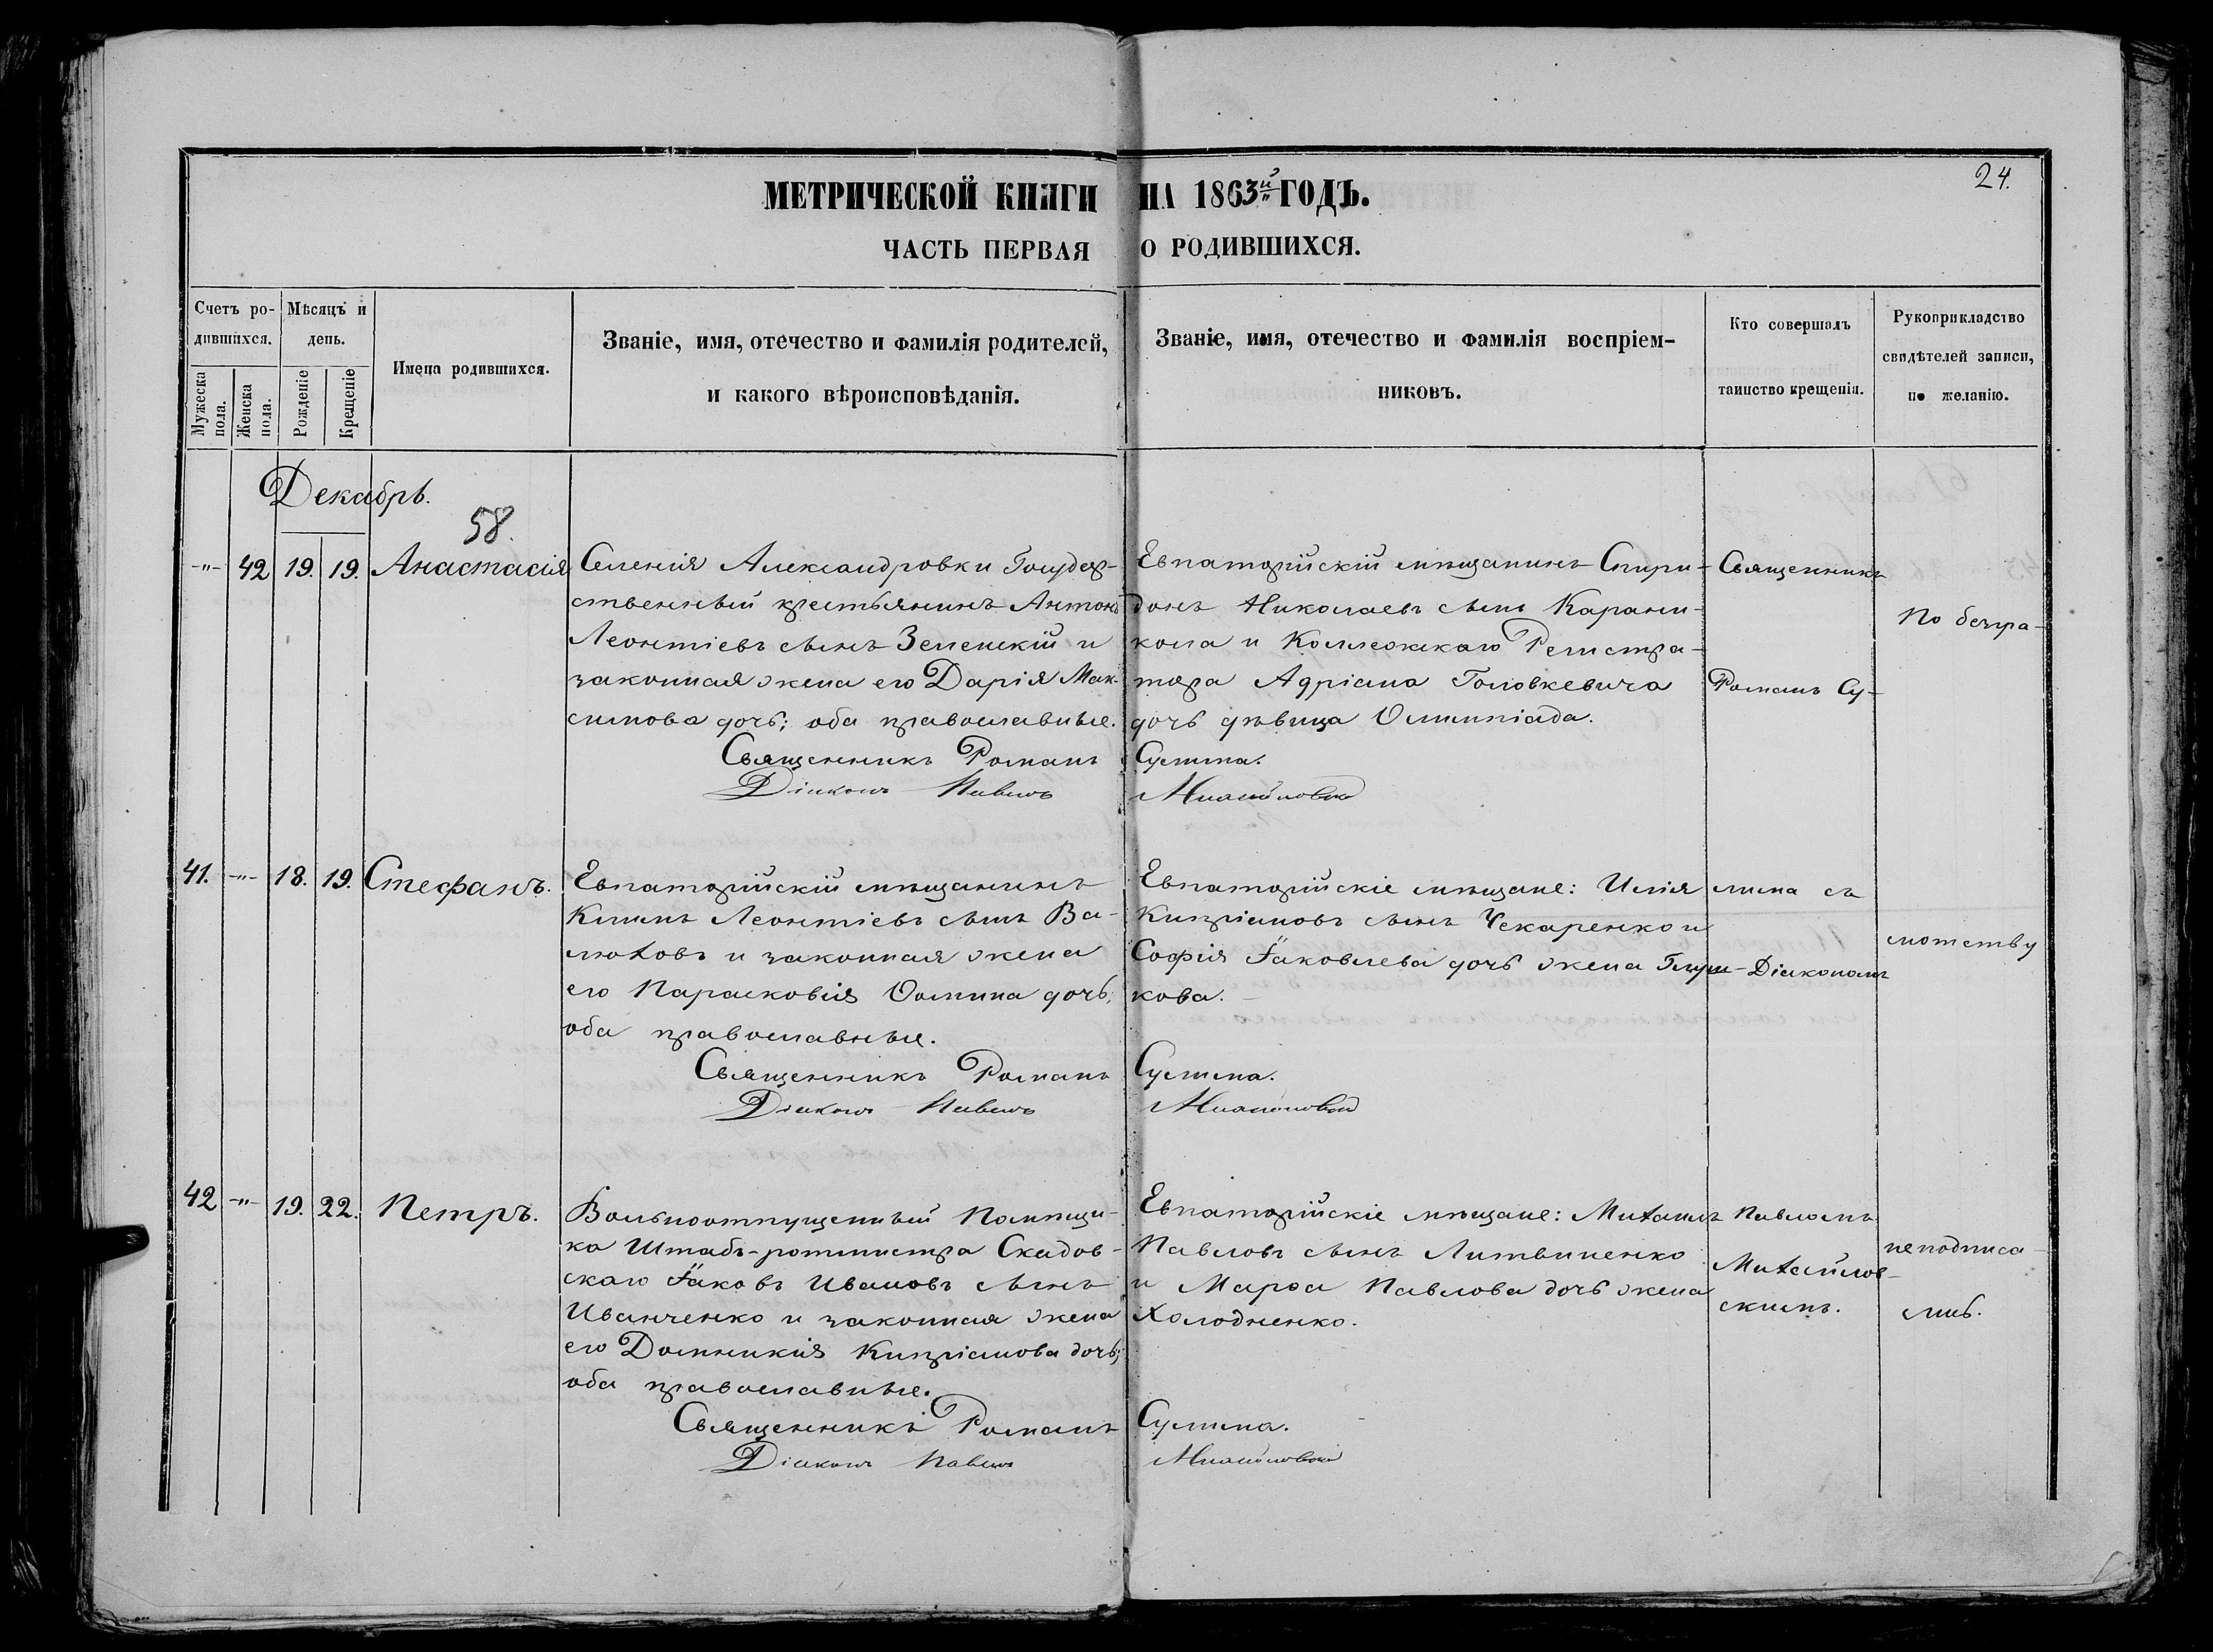 24.
МЕТРИЧЕСКОЙ КНИГИ НА 1863й ГОДЪ.
ЧАСТЬ ПЕРВАЯ О РОДИВШИХСЯ.
Счетъ ро-
дившихся.
Мужеска пола.
Женска пола.
Мѣсяцъ и
день.
Рожденіе
Крещеніе
Имена родившихся.
Званіе, имя, отечество и фамилія родителей,
и какого вѣроисповѣданія.
Званіе, имя, отечество и фамилія воспріем-
никовъ.
Кто совершалъ
таинство крещенія.
Рукоприкладство
свидѣтелей записи,
по желанію.
Декабрь.
58.
-"- 42 19. 19. Анастасія
Селенія Александровки Государ-
ственный крестьянинъ Антонъ
Леонтіевъ сынъ Зеленскій и
законная жена его Дарія Мак-
симова дочь; оба православные.
Священникъ Романъ Сулима.
Діаконъ Павелъ Михайловскій
Евпаторійскій мѣщанинъ Спири-
донъ Николаевъ сынъ Карани-
кола и Коллежскаго Регистра-
тора Адріана Головкевича
дочь дѣвица Олимпіада.
41. -"- 18. 19. Стефанъ.
Евпаторійскій мѣщанинъ
Климъ Леонтіевъ сынъ Ва-
люховъ и законная жена
его Парасковія Фомина дочь;
оба православные.
Священникъ Романъ Сулима.
Діаконъ Павелъ Михайловскій
Евпаторійскіе мѣщане: Илія
Кипріановъ сынъ Чекаренко и
Софія Яковлева дочь жена Глуш-
кова.
42 -"- 19. 22. Петръ.
Вольноотпущенный Помѣщи-
ка Штабъ-ротмистра Скадов-
скаго Яковъ Ивановъ сынъ
Иванченко и законная жена
его Домникія Кипріанова дочь;
оба православные.
Священникъ Романъ Сулима.
Діаконъ Павелъ Михайловскій
Евпаторійскіе мѣщане: Михаилъ
Павловъ сынъ Литвиненко
и Марфа Павлова дочь жена
Холодненко.
Священникъ
Романъ Су-
лима съ
Діакономъ
Павломъ
Михайлов-
скимъ.
По безгра-
мотству
неподписа-
лись.